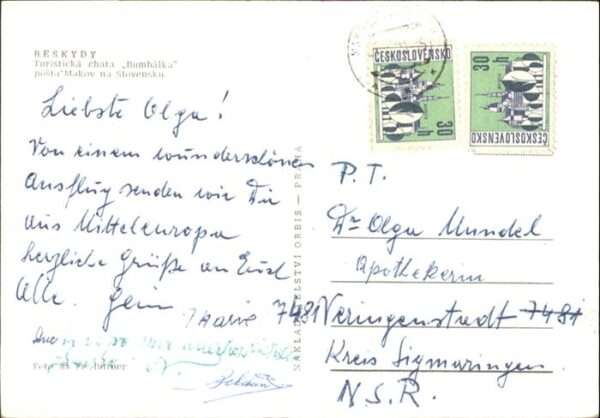 BESKYDY
Turistická chata „Bumbálka"
pošta Makov na Slovensku
ČESKOSLOVENSKO
30 h
ČESKOSLOVENSKO
30 h
Liebste Olga!
Von einem wunderschönen
Ausflug senden wir Dir
aus Mitteleuropa
herzliche Grüße an Euch
Alle.
Marie
NAKLADATELSTVÍ ORBIS — PRAHA
P.T.
Dr Olga Mundel
Apothekerin
7481 Veringenstadt 7481
Kreis Sigmaringen
N.S.R.